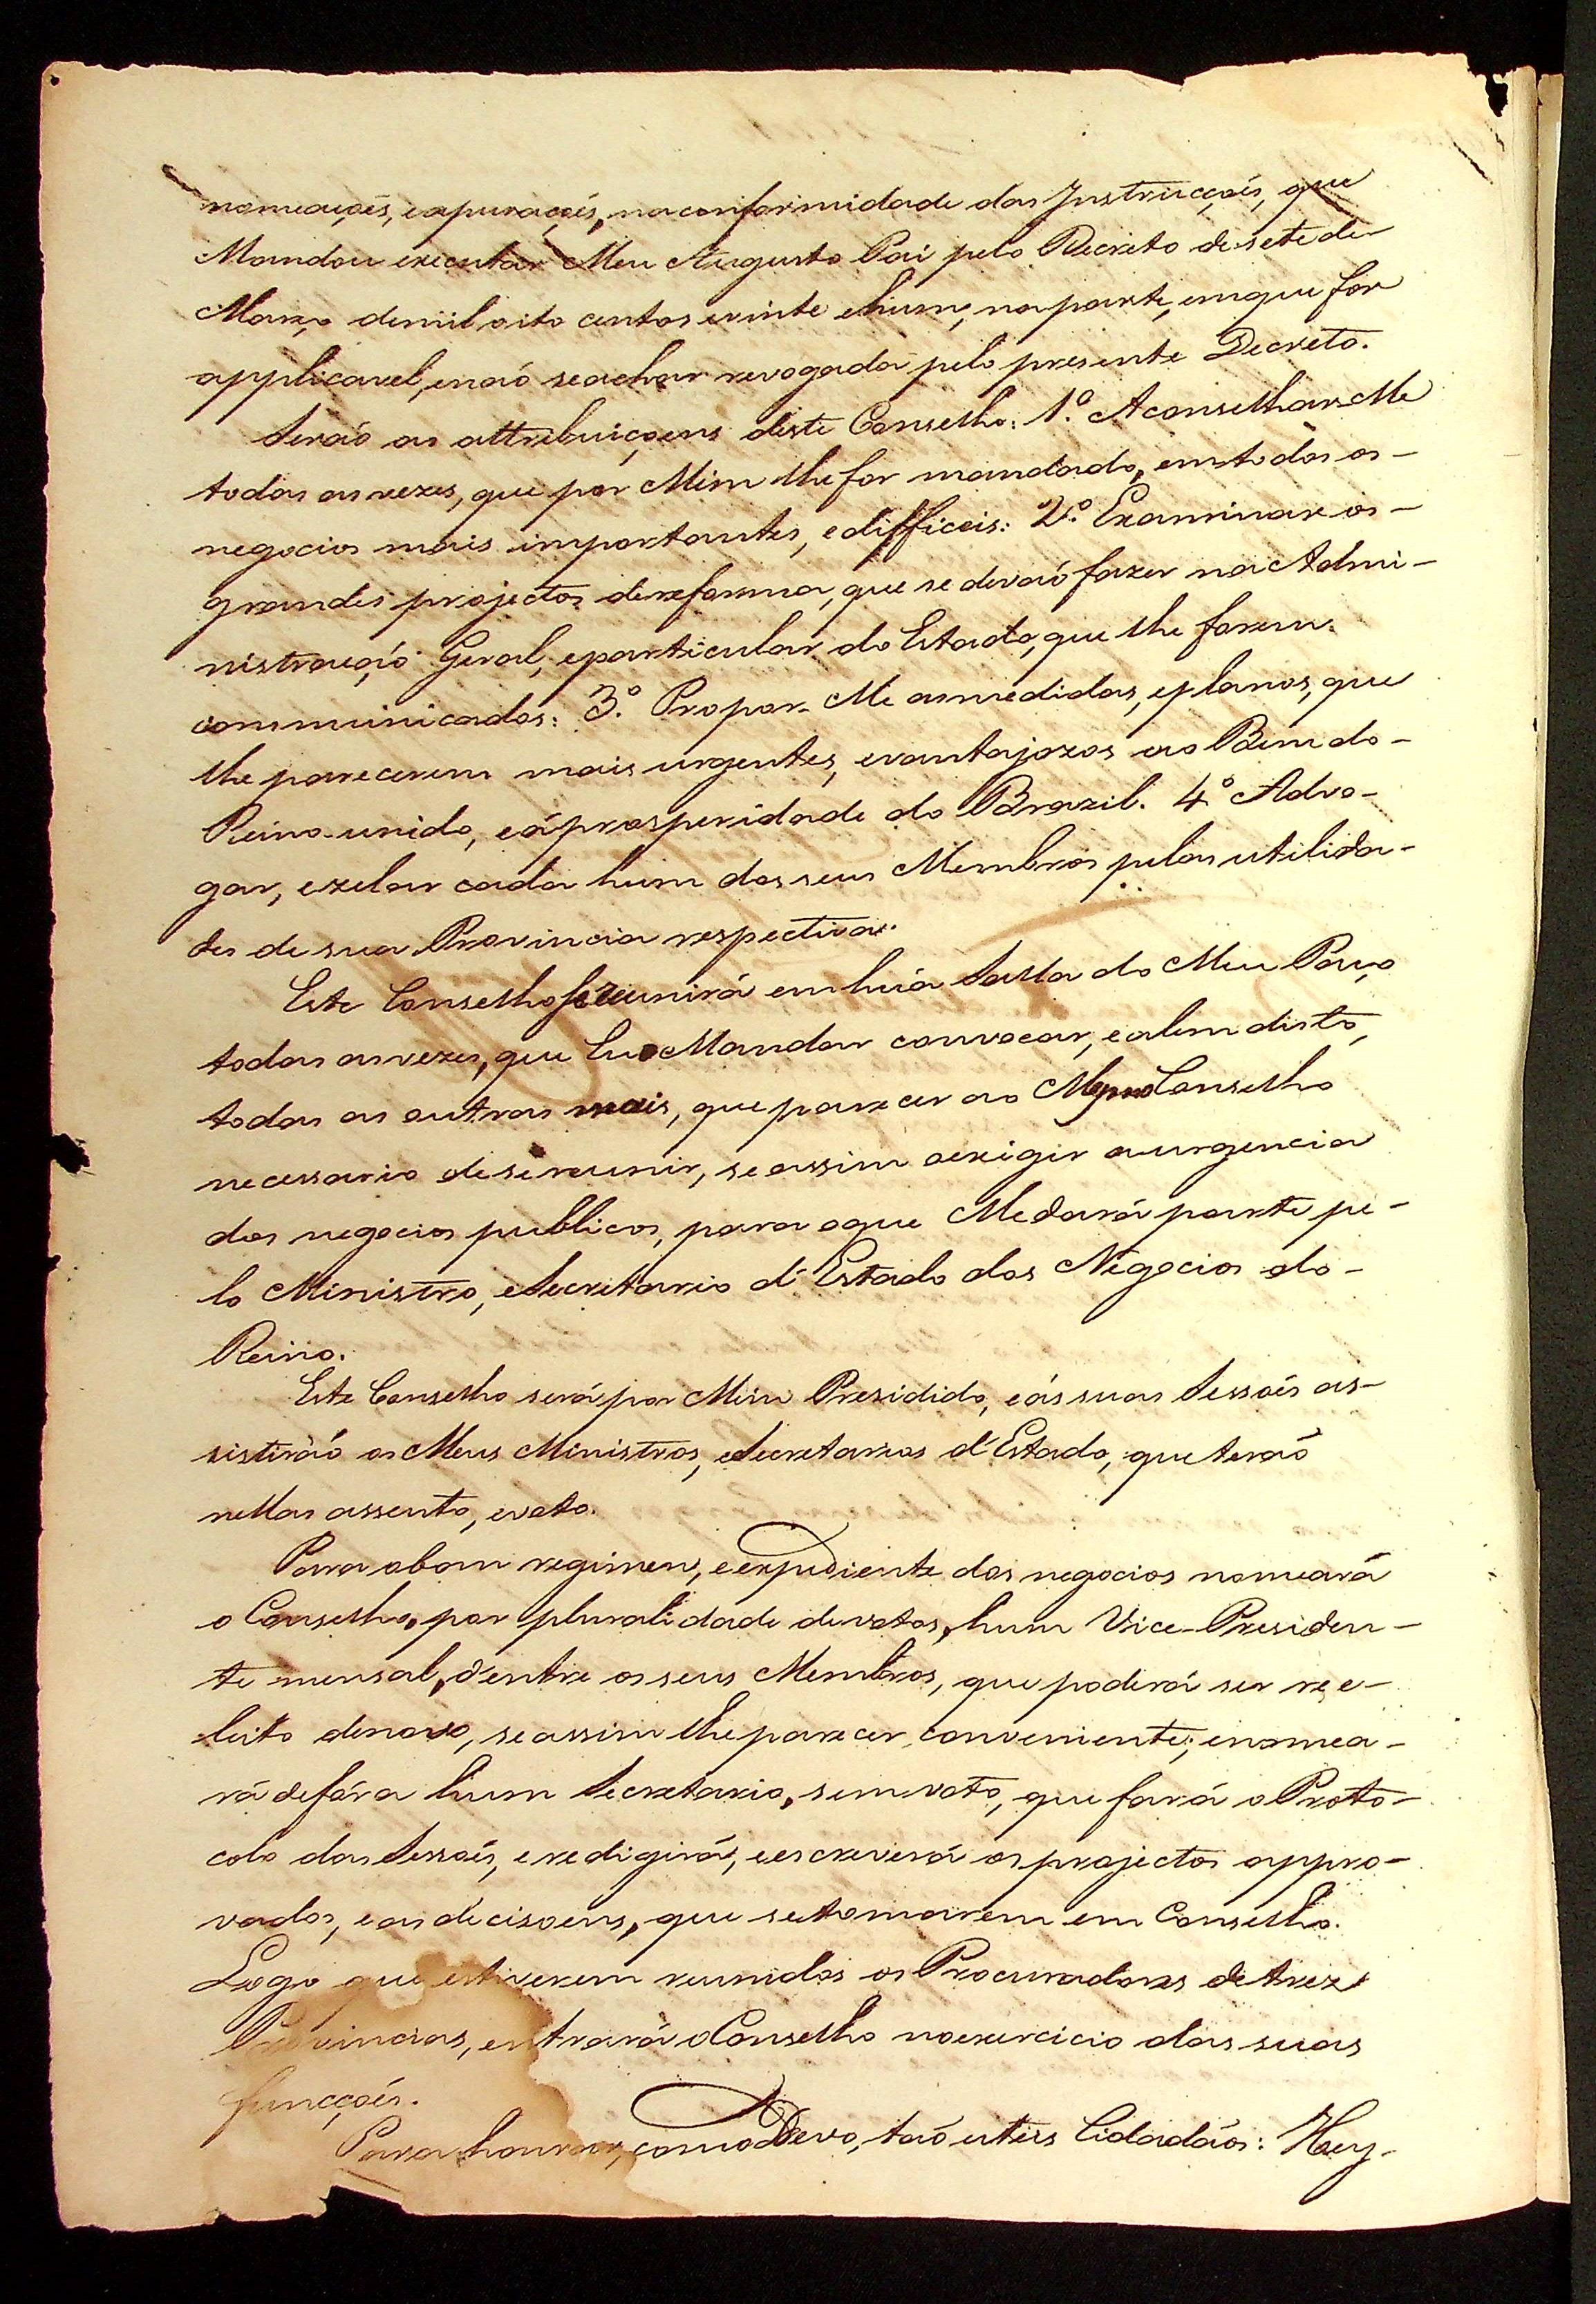 nomeaçoẽs, e apuraçoẽs, na conformidade das Instrucçoẽs, que
Mandou executar Meu Augusto Pai pelo Decreto de sete de
Março de mil oito centos e vinte e hum, na parte, em que for
applicavel, e naõ se achar revogada pelo presente Decreto.
Seraõ as attribuiçoens deste Conselho: 1.º Aconselhar-Me
todas as vezes, que por Mim lhe for mandado, em todos os
negocios mais importantes, e difficeis: 2.º Examinar os
grandes projectos de reforma, que se devaõ fazer na Admi-
nistraçaõ Geral, e particular do Estado, que lhe forem
communicados: 3.º Propor-Me as medidas, e planos, que
lhe parecerem mais urgentes, e vantajozos ao Bem do
Reino-unido, e á prosperidade do Brazil. 4.º Advo-
gar, e zelar cada hum dos seus Membros pelas utilida-
des de sua Provincia respectiva.
Este Conselho se reunirá em huã Salla do Meu Paço
todas as vezes, que Eu o Mandar convocar, e alem disto,
todas as outras mais, que parecer ao Mesmo Conselho
necessario de se reunir, se assim o exigir a urgencia
dos negocios publicos, para o que Me dará parte pe-
lo Ministro, e Secretario d'Estado dos Negocios do
Reino.
Este Conselho será por Mim Presidido, e ás suas Sessoẽs as-
sistiraõ os Meus Ministros, e Secretarios d'Estado, que teraõ
nellas assento, e voto.
Para o bom regimen, e expediente dos negocios nomeará
o Conselho, por pluralidade de votos, hum Vice-Presiden-
te mensal, d'entre os seus Membros, que poderá ser re e-
leito de novo, se assim lhe parecer conveniente; e nomea-
rá de fóra hum Secretario, sem voto, que fará o Proto-
colo das Sessoẽs, e redigirá, e escreverá os projectos appro-
vados, e as decisoens, que se tomarem em Conselho.
Logo que estiverem reunidos os Procuradores de trez
Provincias, entrará o Conselho no exercicio das suas
funcçoẽs.
Para honrar, como Devo, taõ uteis Cidadãos: Hey-